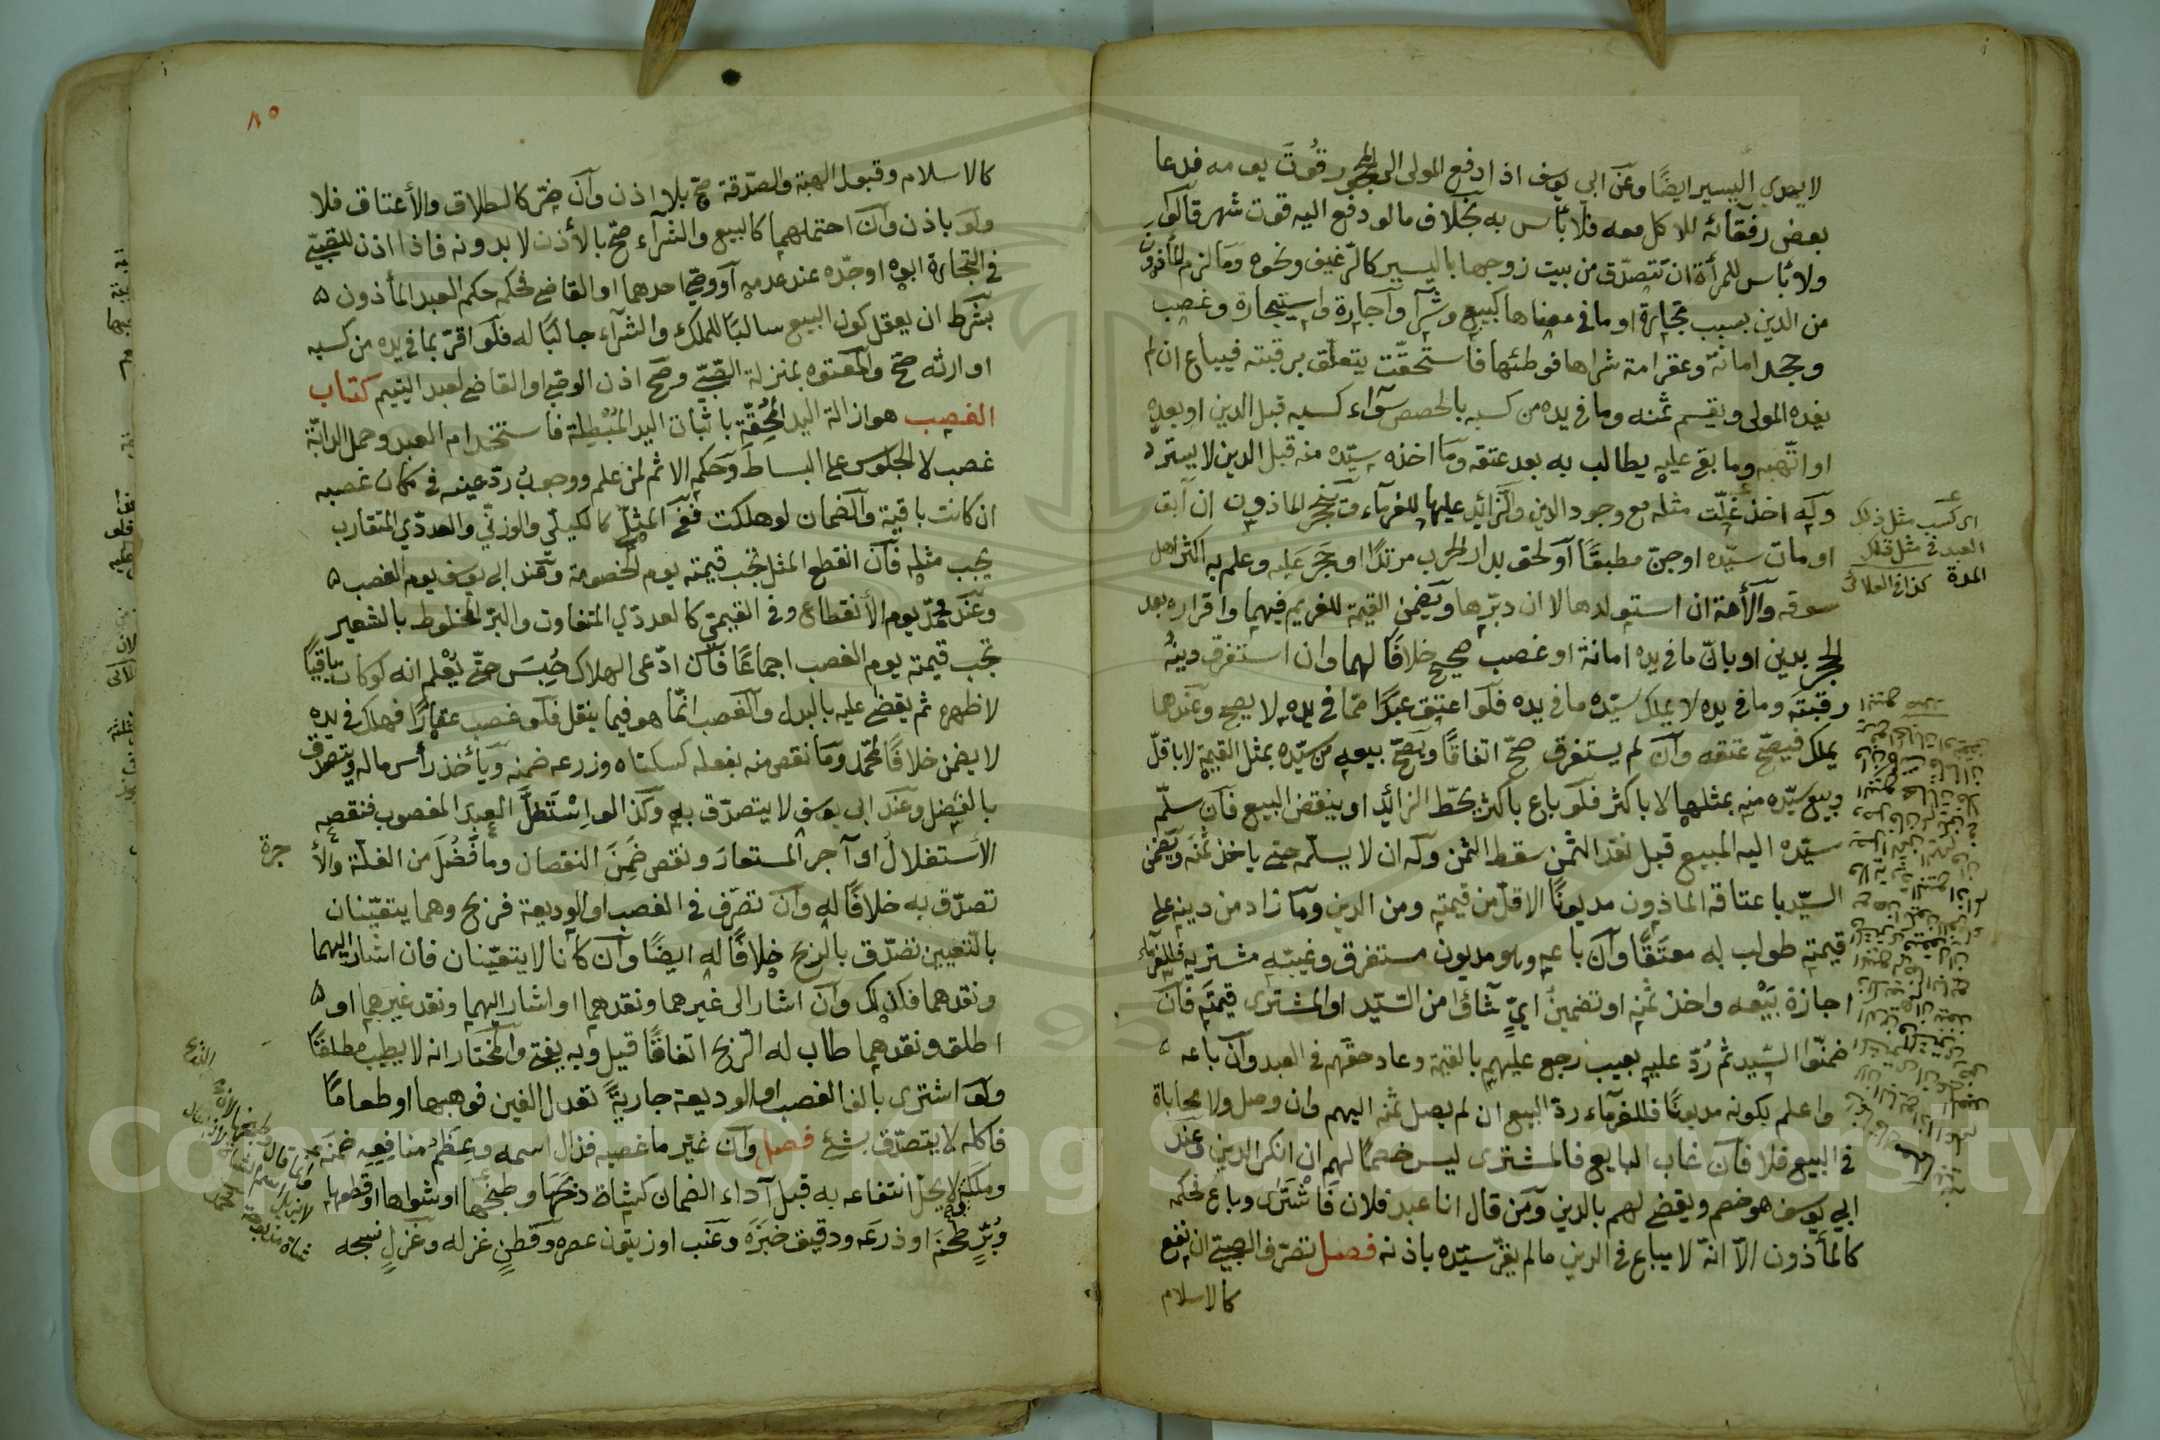 لا يهدي اليسير ايضًا وعن ابي يوسف اذا دفع المولى الى المحجور قُوتَ يومه فدعا
بعض رفقائه للاكل معه فلا بأس به بخلاف ما لو دفع اليه قوت شهر قالوا
ولا بأس للمرأة ان تتصدّق من بيت زوجها باليسير كالرّغيف ونحوه وما لزم المأذون
من الدين بسبب تجارة او ما في معناها كبيع وشرآء وآجارة واستيجارة وغصب
وجحد امانة وعقر امة شراها فوطئها فاستحقّت يتعلّق برقبته فيباع ان لم
يفده المولى ويقسم ثمنه وما في يده من كسبه بالحصص سوآء كسبه قبل الدين او بعده
او اتّهبه وما بقي عليه يطالب به بعد عتقه وما اخذه سيّده منه قبل الدين لا يستردّ
وله اخذ غلّت مثله مع وجود الدين والزائد عليها للغرمآء وينحجر الماذون ان آبق
او مات سيّده او جنّ مطبقًا او لحق بدار الحرب مرتدًا او حجر عليه وعلم به اكثر اهل
سوقه والأمة ان استولدها لا ان دبّرها ويضمن القيمة للغريم فيهما واقراره بعد
الحجر بدين او بانّ ما في يده امانة او غصب صحيح خلافًا لهما وان استغرق دينُه
رقبتَه وما في يده لا يملك سيّده ما في يده فلو اعتق عبدًا ممّا في يده لا يصح وعندهما
يملك فيصحّ عتقه وان لم يستغرق صحّ اتفاقًا ويصحّ بيعه من سيّده بمثل القيمة لا باقلّ
وبيع سيّده منه بمثلها لا باكثر فلو باع باكثر يحطّ الزائد او ينقض البيع فان سلّم
سيّده اليه المبيع قبل نقد الثمن سقط الثمن وله ان لا يسلّمه حتى ياخذ ثمنَه ويضمن
السيّد باعتاقه الماذون مديونًا الاقلّ من قيمته ومن الدين وما زاد من دينه على
قيمته طولب به معتَقًا وان باعه وهو مديون مستغرق وغيّبه مشتريه فللغرمآء
اجازة بَيْعه واخذ ثمنِه او تضمينُ ايٍّ شآؤا من السّيّد او المشترى قيمتَه فان
ضمنّوا السّيد ثم رُدّ عليه بعيب رجع عليهم بالقيمة وعاد حقهم في العبد وان باعه
واعلم بكونه مديونًا فللغرمآء ردّ البيع ان لم يصل ثمنه اليهم وان وصل ولا محاباة
في البيع فلا فان غاب البايع فالمشترى ليس خصمًا لهم ان انكر الدين وعند
ابي يوسف هو خصم ويقضى لهم بالدين ومن قال انا عبد فلان فاشْترَى وباع فحكمه
كالمأذون الّا انّه لا يباع في الدين ما لم يقرّ سيّده باذنه فصل تصرّف الصبيّ ان نفع
كالاسلام
اى كسب مثل ذلك
العبد في مثل تلك
المدة كذا في العلائى
٨٥
كالاسلام وقبول الهبة والصّدقة صحّ بلا اذن وان ضرّ كالطلاق والأعتاق فلا
ولو باذن وان احتملهما كالبيع والشّرآء صحّ بالأذن لا بدونه فاذا اذن للصّبيّ
في التجارة ابوه او جدّه عند عدمه او وصيّ احدهما او القاضى فحكمه حكم العبد المأذون
بشرط ان يعقل كون البيع سالبًا للملك والشرآء جالبًا له فلو اقرّ بما في يده من كسبه
او ارثه صحّ والمعتوه بمنزلة الصّبيّ وصحّ اذن الوصيّ او القاضى لعبد اليتيم كتاب
الغصب هو ازالة اليد المُحِقّة باثبات اليد المُبْطِلة فاستخدام العبد وحمل الدابّة
غصب لا الجلوس على البساط وحكمه الاثم لمن علم ووجوبُ ردّ عينه في مكان غصبه
ان كانت باقية والضمان لو هلكت ففى المثليّ كالكيلىّ والوزنىّ والعدديّ المتقارب
يجب مثله فان انقطع المثل تجب قيمته يوم الخصومة وعند ابي يوسف يوم الغصب
وعند محمّد يوم الأنقطاع وفي القيمىّ كالعدديّ المتفاوت والبرّ المخلوط بالشعير
تجب قيمته يوم الغصب اجماعًا فان ادّعى الهلاك حُبِسَ حتّى يُعْلم انه لو كان باقيًا
لاظهره ثم يقضى عليه بالبدل والغصب انّما هو فيما ينقل فلو غصب عقارًا فهلك في يده
لا يضمن خلافًا لمحمّد وما نقص منه بفعله كسكناه وزرعه ضمنه ويأخذ رأس ماله ويتصدّق
بالفضل وعند ابي يوسف لا يتصدّق به وكذا لو اِسْتَغلَّ العبدَ المغصوب فنقصه
الأستغلالُ او آجر المستعارَ ونقص ضَمِنَ النقصان وما فَضُلَ من الغلّة والأ
جرة
تصدّق به خلافًا له وان تصّرف في الغصب او الوديعة فربح وهما يتعيّنان
بالتعيين تصدّق بالربح خلافًا له ايضًا وان كانا لا يتعيّنان فان اشار اليهما
ونقدهما فكذلك وان اشار الى غيرهما ونقدهما او اشار اليهما ونقد غيرهما او
اطلق ونقدهما طاب له الرّبح اتفاقًا قيل وبه يفتى والمختار انه لا يطيب مطلقًا
ولو اشترى بألف الغصب او الوديعة جاريةً تعدل الفين فوهبها او طعامًا
فاكله لا يتصدّق بشئ فصل وان غيّر ما غصبه فزال اسمه وعِظَمُ منافعِه ضمنَه
وملكه ولا يحل انتفاعه به قبل آداء الضمان كشاة ذبحها وطبخها او شواها او قطعها
وبُرٍّ طحنَه او ذرعَه ودقيق خبزَه وعنب او زيتون عصره وقطنٍ غزله وغزلٍ نسجه
Copyright © King Saud University